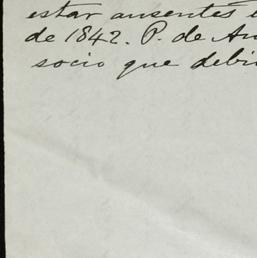 estar ausentes
de 1842. P. de
socio que